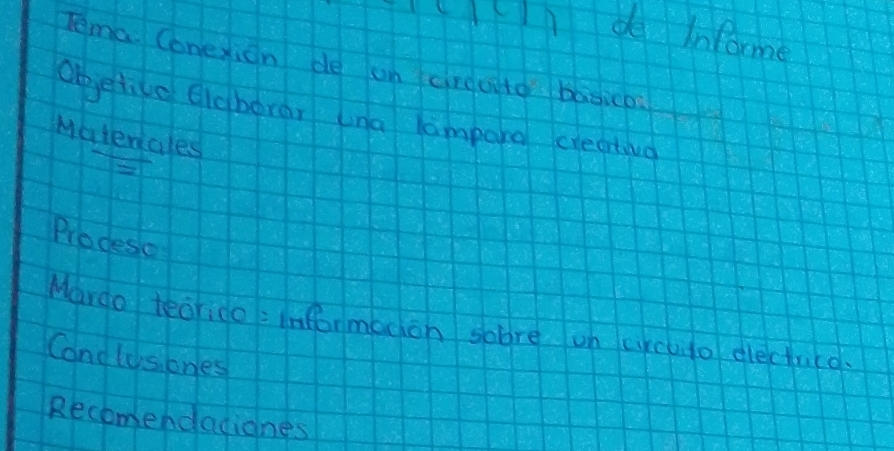 de Informe
Tema. Conexión de un circuito basico.
Objetivo Elaborar una lámpara creativa
Materiales
Proceso
Marco teórico: información sobre un circuito electrico.
Conclusiones
Recomendaciones